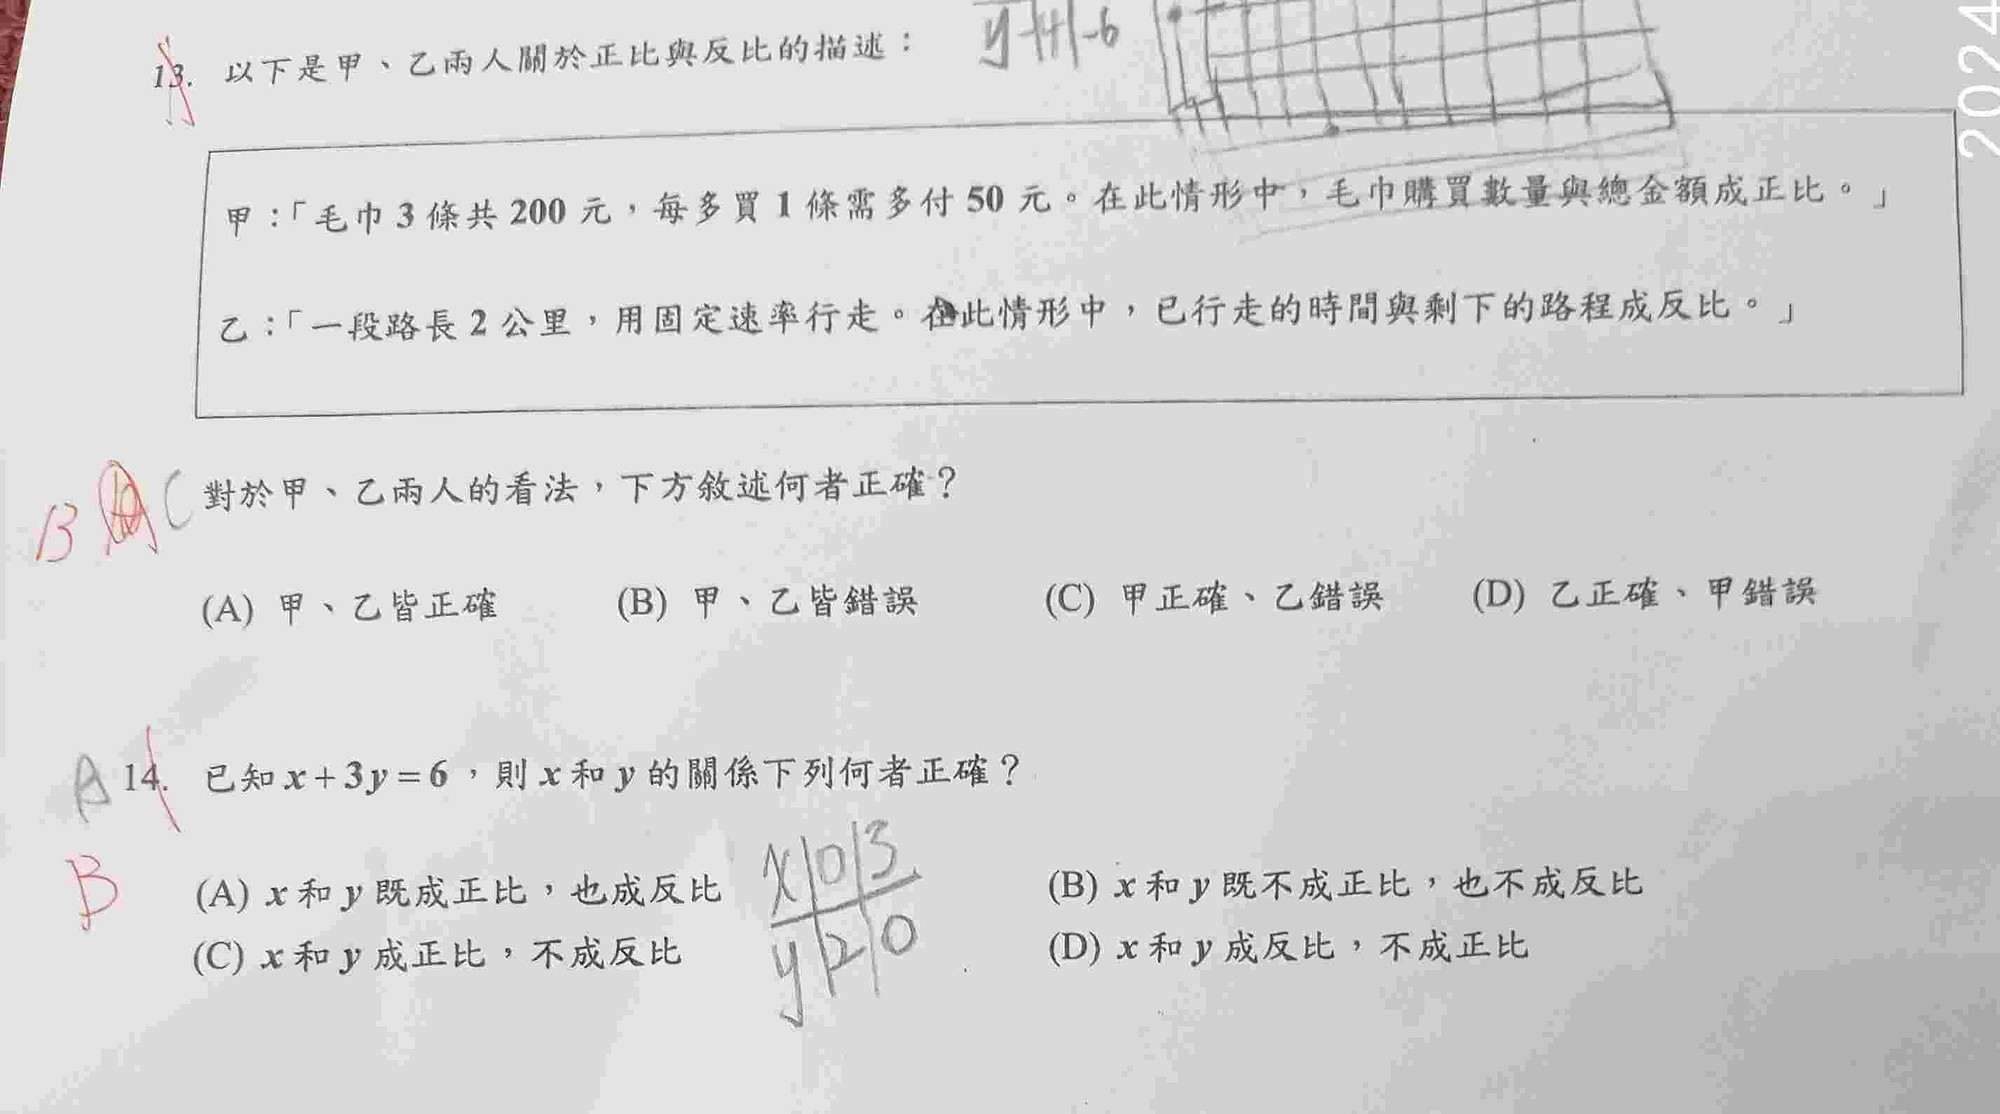 y -4 -6
2024
13. 以下是甲、乙兩人關於正比與反比的描述：
甲：「毛巾 3 條共 200 元，每多買 1 條需多付 50 元。在此情形中，毛巾購買數量與總金額成正比。」
乙：「一段路長 2 公里，用固定速率行走。在此情形中，已行走的時間與剩下的路程成反比。」
B C 對於甲、乙兩人的看法，下方敘述何者正確？
(A) 甲、乙皆正確 (B) 甲、乙皆錯誤 (C) 甲正確、乙錯誤 (D) 乙正確、甲錯誤
A 14. 已知 x + 3y = 6，則 x 和 y 的關係下列何者正確？
B
(A) x 和 y 既成正比，也成反比 (B) x 和 y 既不成正比，也不成反比
(C) x 和 y 成正比，不成反比 (D) x 和 y 成反比，不成正比
x 0 3
y 2 0